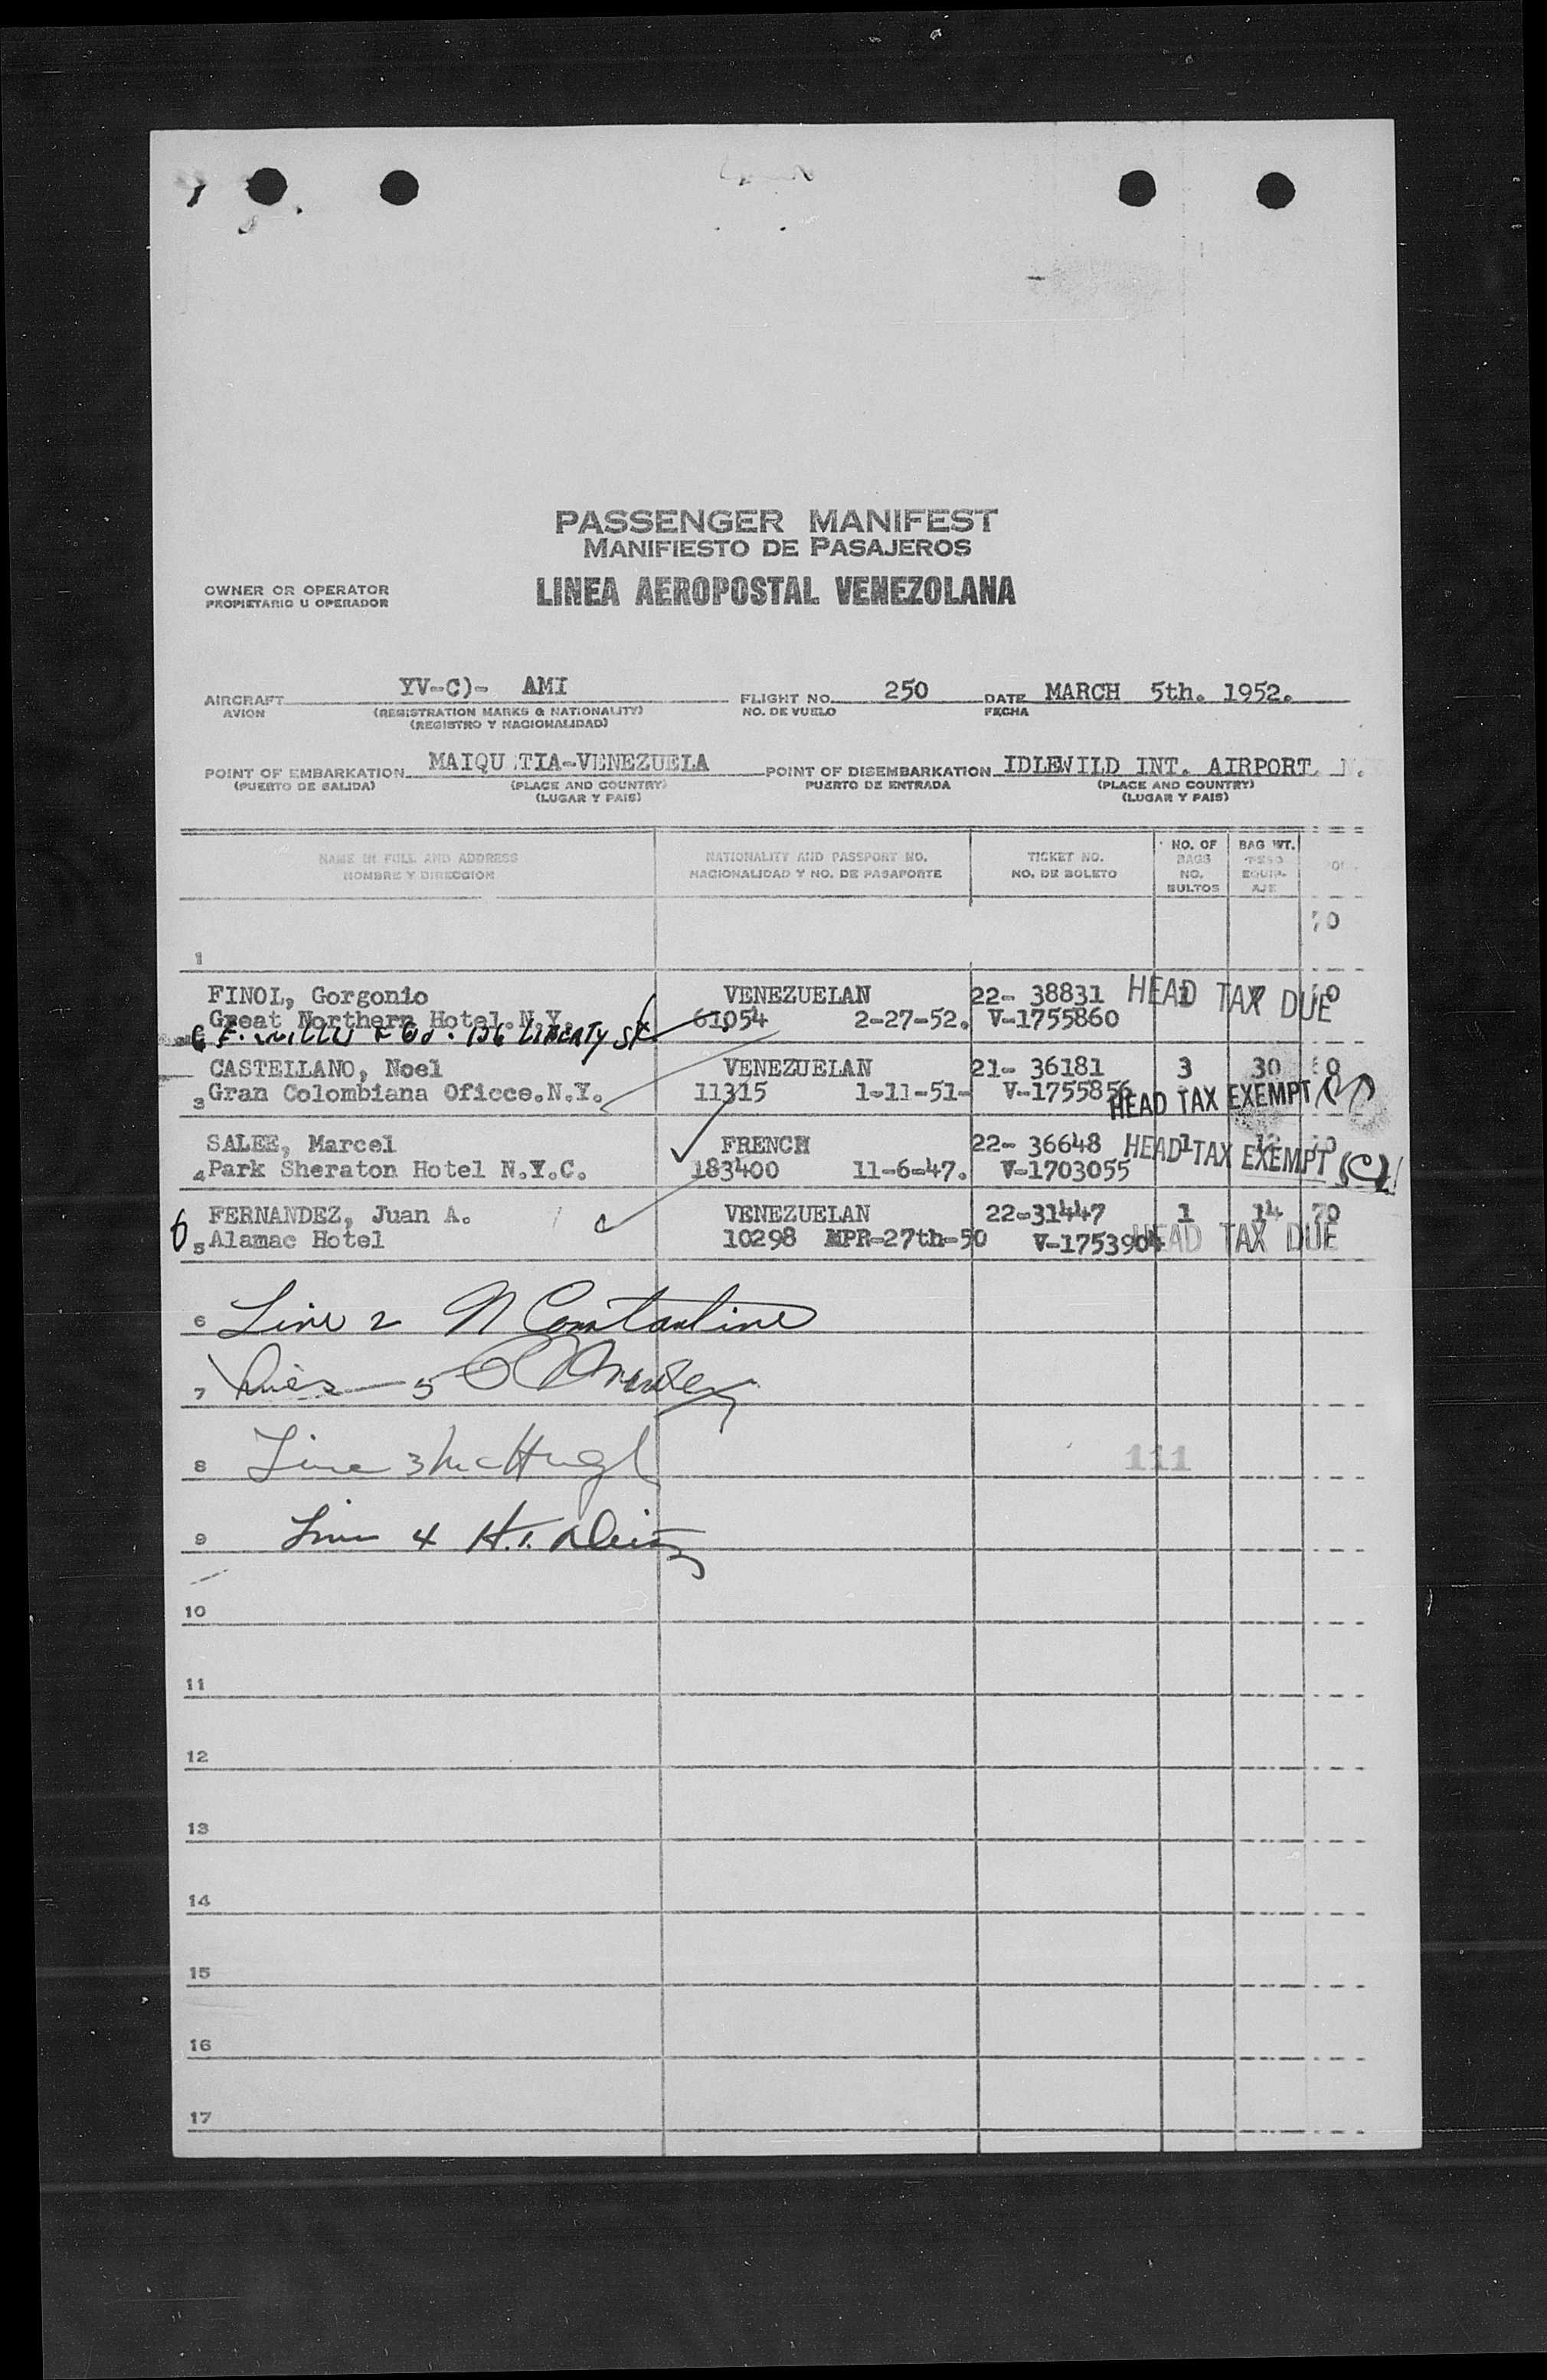 PASSENGER MANIFEST
MANIFIESTO DE PASAJEROS
OWNER OR OPERATOR
PROPIETARIO U OPERADOR
LINEA AEROPOSTAL VENEZOLANA
AIRCRAFT YV-C)- AMI FLIGHT NO. 250 DATE MARCH 5th. 1952.
AVION (REGISTRATION MARKS & NATIONALITY) NO. DE VUELO FECHA
(REGISTRO Y NACIONALIDAD)
POINT OF EMBARKATION MAIQU TIA-VENEZUELA POINT OF DISEMBARKATION IDLEWILD INT. AIRPORT. N.
(PUERTO DE SALIDA) (PLACE AND COUNTRY) PUERTO DE ENTRADA (PLACE AND COUNTRY)
(LUGAR Y PAIS) (LUGAR Y PAIS)
NAME IN FULL AND ADDRESS NATIONALITY AND PASSPORT NO. TICKET NO. NO. OF BAGS BAG WT.
NOMBRE Y DIRECCION NACIONALIDAD Y NO. DE PASAPORTE NO. DE BOLETO NO. BULTOS PESO EQUIP-AJE
1
FINOL, Gorgonio VENEZUELAN 22- 38831 HEAD TAX DUE
Great Northern Hotel.N.Y. 61054 2-27-52. V-1755860
LIBERTY St
CASTELLANO, Noel VENEZUELAN 21- 36181 3 30
3 Gran Colombiana Oficce.N.Y. 11315 1-11-51- V-1755856 HEAD TAX EXEMPT
SALEE, Marcel FRENCH 22- 36648 1 12 HEAD TAX EXEMPT (C)
4 Park Sheraton Hotel N.Y.C. 183400 11-6-47. V-1703055
FERNANDEZ, Juan A. VENEZUELAN 22-31447 1 14 70
5 Alamac Hotel 10298 MPR-27th-50 V-1753904 HEAD TAX DUE
6 Line 2 N Constantine
7
8 Line 3 McHugh
111
9 Line 4 H.
10
11
12
13
14
15
16
17